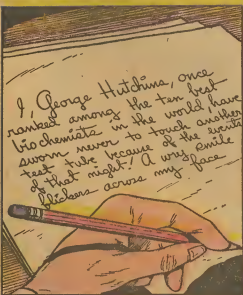 I, George Hutchins, once
ranked among the ten best
biochemists in the world have
sworn never to touch another
test tube because of the events
of that night! A wry smile
flickers across my face